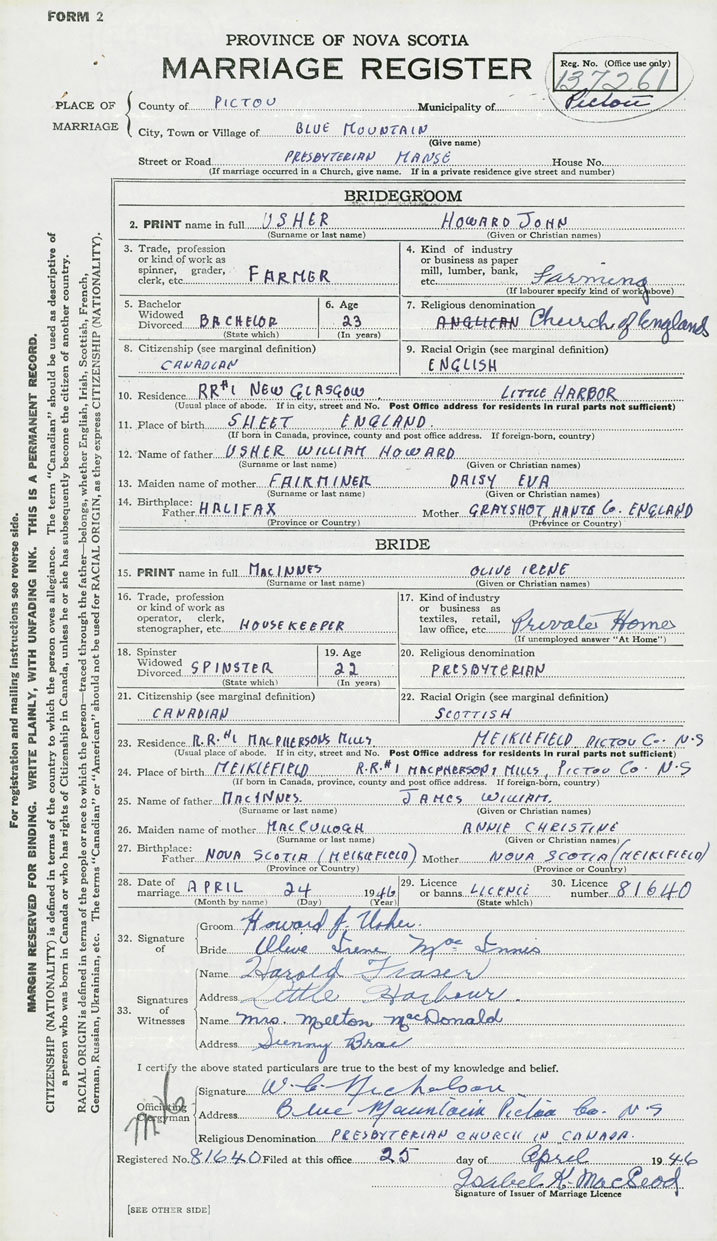 FORM 2
PROVINCE OF NOVA SCOTIA
MARRIAGE REGISTER
Reg. No. (Office use only)
137261
PLACE OF MARRIAGE
County of PICTOU Municipality of Pictou
City, Town or Village of BLUE MOUNTAIN
(Give name)
Street or Road PRESBYTERIAN MANSE House No.
(If marriage occurred in a Church, give name. If in a private residence give street and number)
BRIDEGROOM
2. PRINT name in full USHER HOWARD JOHN
(Surname or last name) (Given or Christian names)
3. Trade, profession or kind of work as spinner, grader, clerk, etc. FARMER
4. Kind of industry or business as paper mill, lumber, bank, etc. Farming
(If labourer specify kind of work above)
5. Bachelor Widowed Divorced BACHELOR
(State which)
6. Age 23
(In years)
7. Religious denomination
ANGLICAN Church of England
8. Citizenship (see marginal definition)
CANADIAN
9. Racial Origin (see marginal definition)
ENGLISH
10. Residence RR#1 NEW GLASGOW LITTLE HARBOR
(Usual place of abode. If in city, street and No. Post Office address for residents in rural parts not sufficient)
11. Place of birth SHEET ENGLAND.
(If born in Canada, province, county and post office address. If foreign-born, country)
12. Name of father USHER WILLIAM HOWARD
(Surname or last name) (Given or Christian names)
13. Maiden name of mother FAIRMINER DAISY EVA
(Surname or last name) (Given or Christian names)
14. Birthplace: Father HALIFAX Mother GRAYSHOT, HANTS Co. ENGLAND
(Province or Country) (Province or Country)
BRIDE
15. PRINT name in full MACINNES OLIVE IRENE
(Surname or last name) (Given or Christian names)
16. Trade, profession or kind of work as operator, clerk, stenographer, etc HOUSEKEEPER
17. Kind of industry or business as textiles, retail, law office, etc. Private Home
(If unemployed answer "At Home")
18. Spinster Widowed Divorced SPINSTER
(State which)
19. Age 22
(In years)
20. Religious denomination
PRESBYTERIAN
21. Citizenship (see marginal definition)
CANADIAN
22. Racial Origin (see marginal definition)
SCOTTISH
23. Residence R.R.#1 MACPHERSONS MILLS MEIKLEFIELD PICTOU CO. N.S
(Usual place of abode. If in city, street and No. Post Office address for residents in rural parts not sufficient)
24. Place of birth MEIKLEFIELD R.R.#1 MACPHERSONS MILLS, PICTOU CO. N.S
(If born in Canada, province, county and post office address. If foreign-born, country)
25. Name of father MACINNES. JAMES WILLIAM.
(Surname or last name) (Given or Christian names)
26. Maiden name of mother MACCULLOGH ANNIE CHRISTINE
(Surname or last name) (Given or Christian names)
27. Birthplace: Father NOVA SCOTIA (MEIKLEFIELD) Mother NOVA SCOTIA (MEIKLEFIELD)
(Province or Country) (Province or Country)
28. Date of marriage APRIL 24 1946
(Month by name) (Day) (Year)
29. Licence or banns LICENCE
(State which)
30. Licence number 81640
32. Signature of
Groom Howard J. Usher.
Bride Olive Irene MacInnis
33. Signatures of Witnesses
Name Harold Fraser
Address Little Harbour.
Name Mrs. Melton MacDonald
Address Sunny Brae
I certify the above stated particulars are true to the best of my knowledge and belief.
Officiating Clergyman
Signature W. C. Nicholson
Address Blue Mountain Pictou Co. N.S
Religious Denomination PRESBYTERIAN CHURCH IN CANADA.
Registered No. 81640 Filed at this office 25 day of April 1946
Isabel K. MacLeod
Signature of Issuer of Marriage Licence
[SEE OTHER SIDE]
For registration and mailing instructions see reverse side.
MARGIN RESERVED FOR BINDING. WRITE PLAINLY, WITH UNFADING INK. THIS IS A PERMANENT RECORD.
CITIZENSHIP (NATIONALITY) is defined in terms of the country to which the person owes allegiance. The term "Canadian" should be used as descriptive of
a person who was born in Canada or who has rights of Citizenship in Canada, unless he or she has subsequently become the citizen of another country.
RACIAL ORIGIN is defined in terms of the people or race to which the person—traced through the father—belongs, whether English, Irish, Scottish, French,
German, Russian, Ukrainian, etc. The terms "Canadian" or "American" should not be used for RACIAL ORIGIN, as they express CITIZENSHIP (NATIONALITY).